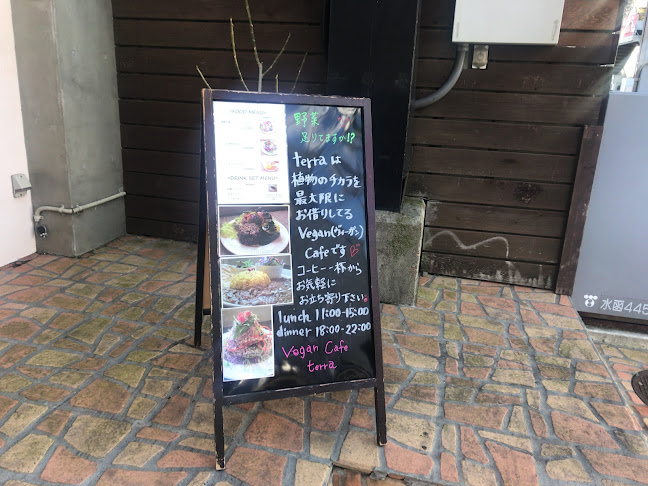 野菜
足りてますか!?
terraは
植物のチカラを
最大限に
お借りしてる
Vegan(ヴィーガン)
Cafeです
コーヒー一杯から
お気軽に
お立ち寄り下さい。
lunch 11:00-15:00
dinner 18:00-22:00
Vegan Cafe
terra
<FOOD MENU>
<DRINK SET MENU>
水函445